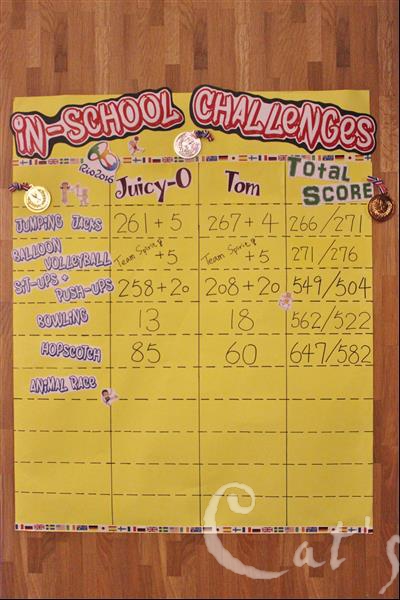 iN-SCHOOL CHALLENGES
RIO2016
Juicy-O Tom TOTAL SCORE
JUMPING JACKS 261+5 267+4 266/271
BALLOON VOLLEYBALL Team Spirit +5 Team Spirit +5 271/276
SIT-UPS + PUSH-UPS 258+20 208+20 549/504
BOWLING 13 18 562/522
HOPSCOTCH 85 60 647/582
ANIMAL RACE
Cat's